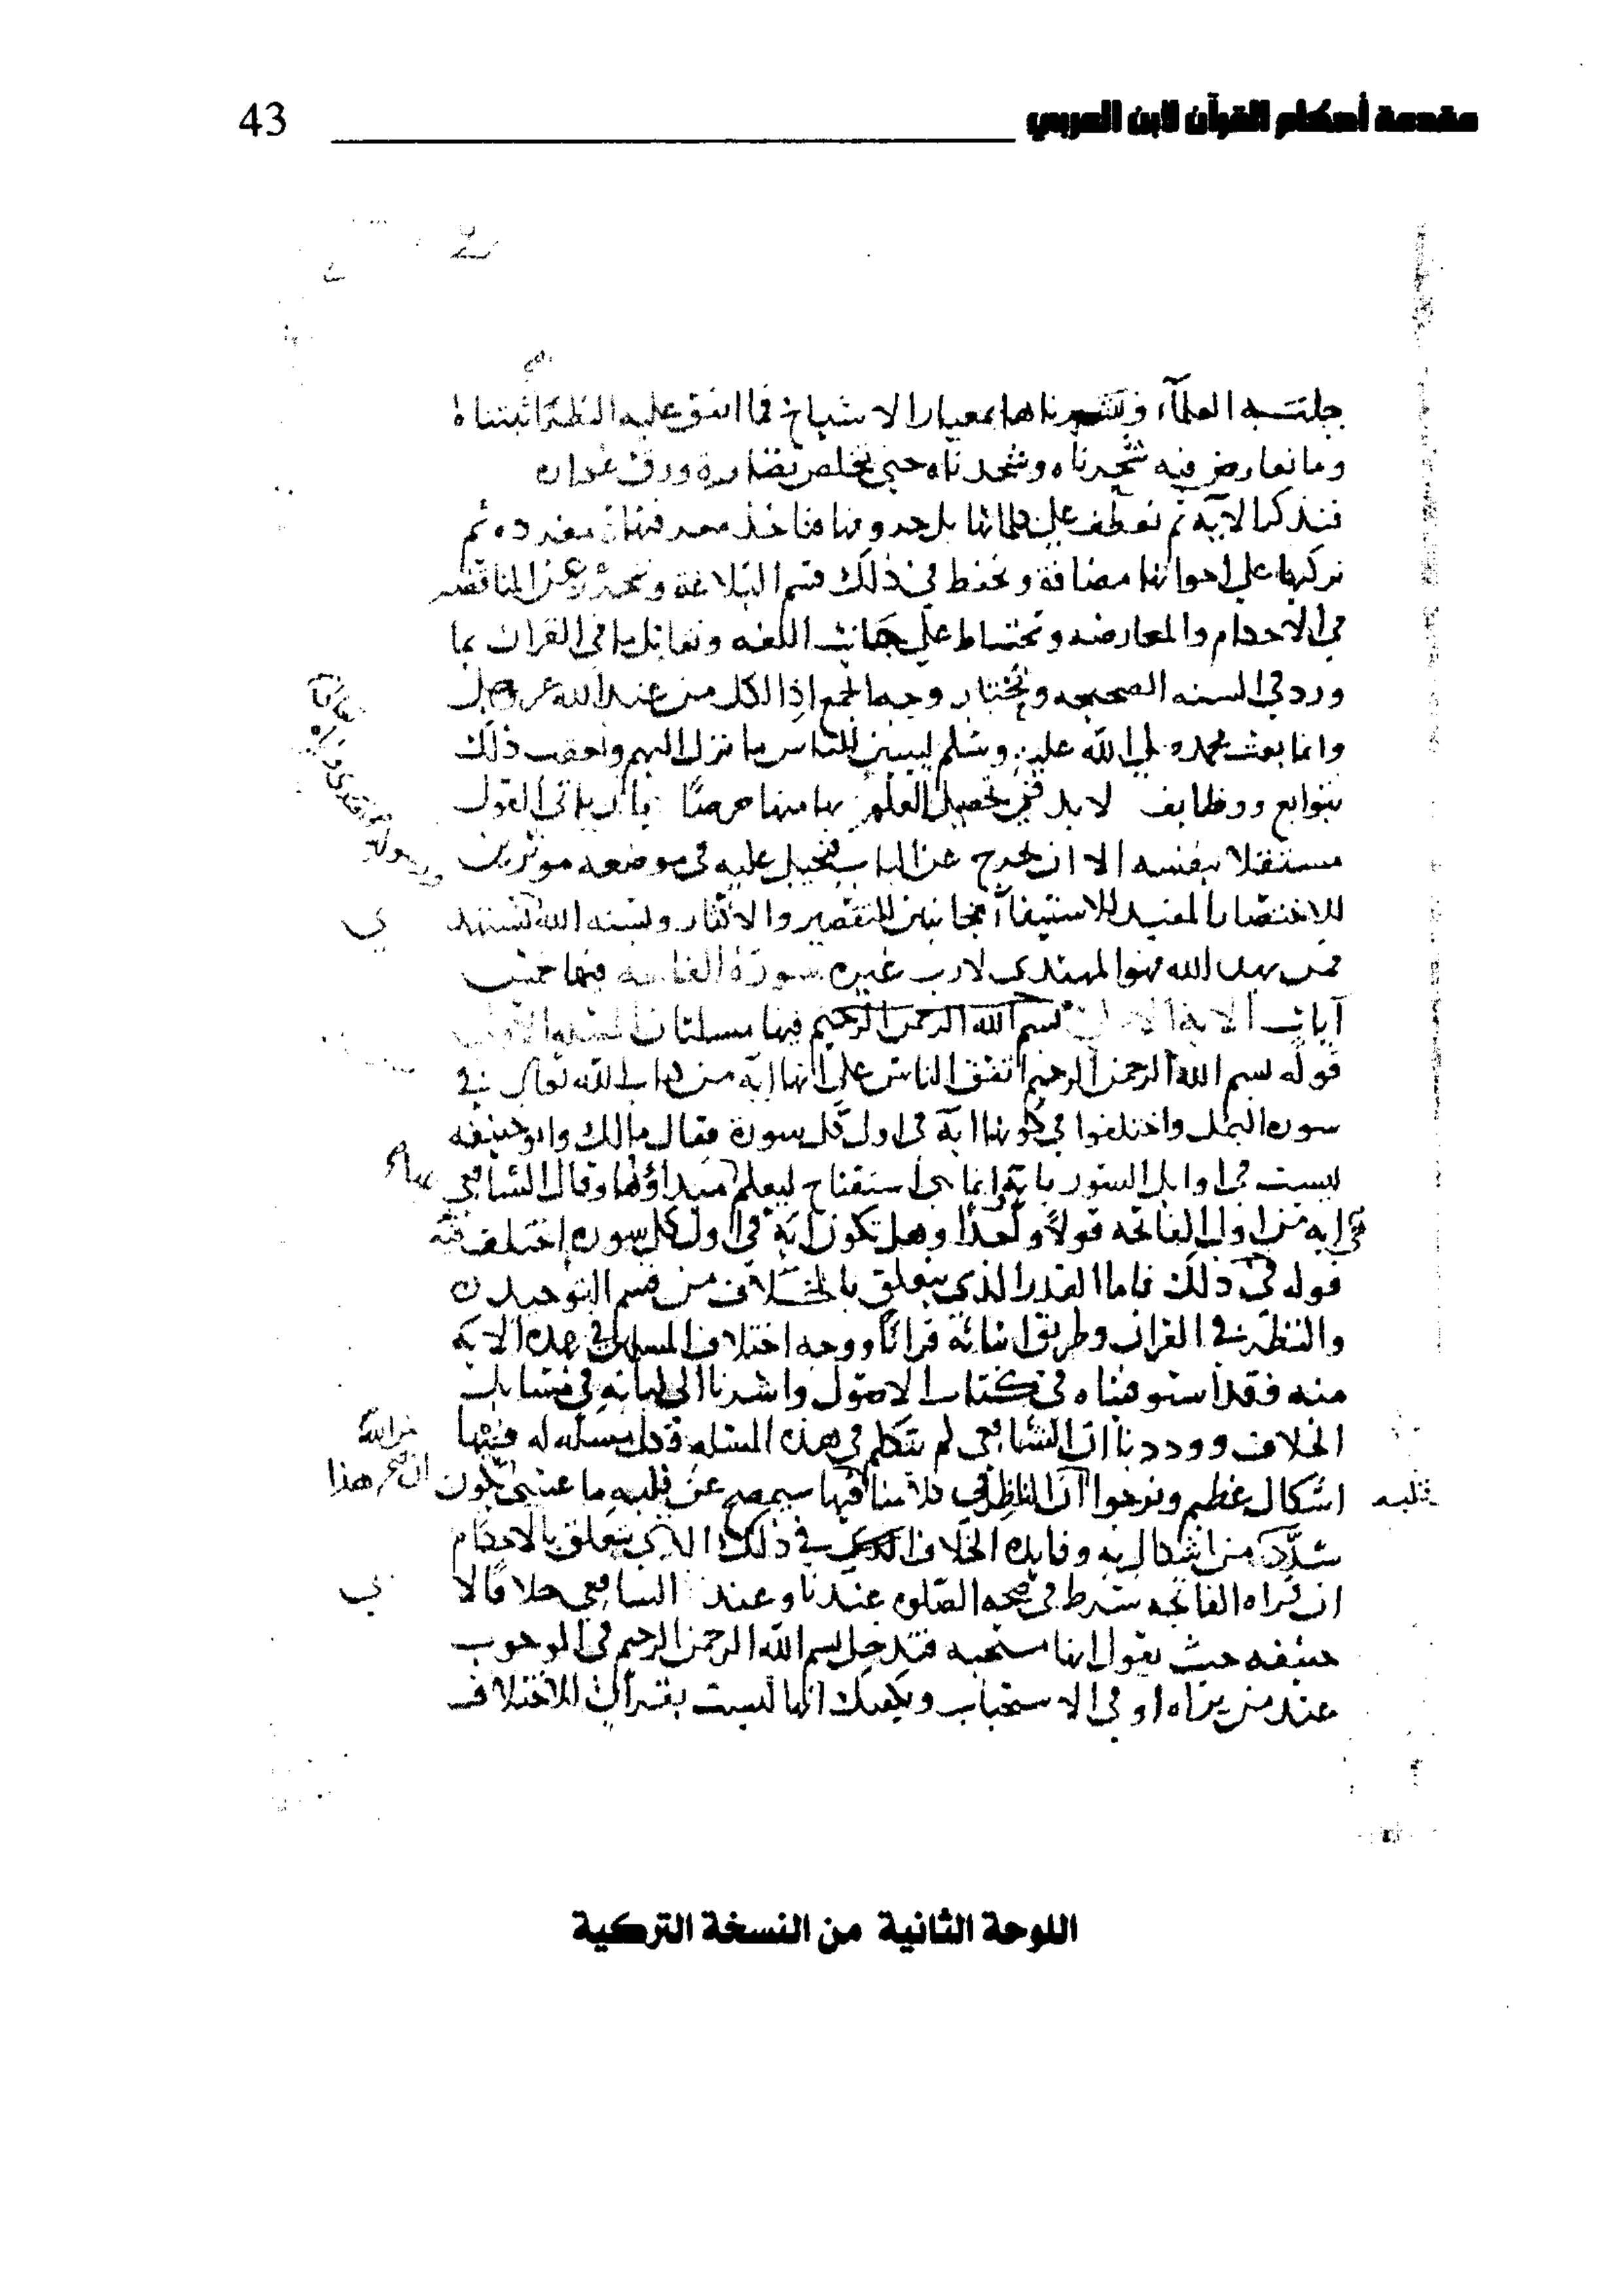 مقدمة أحكام القرآن لابن العربي
43
جلبته العلماء وسبرناها بمعيار الاشياخ فما اتفق عليه النظر اثبتناه
وما تعارض فيه شجرناه وشحذناه حتى يخلص نضاره وورق
فنذكر الاية ثم نعطف على كلماتها بل حروفها فناخذ معرفتها مفرده ثم
نركبها على اخواتها مضافة ونحفظ في ذلك قسم البلاغة ونتحرز عن المناقضه
في الاحكام والمعارضه ونحتاط على جانب اللغه ونقابلها في القران بما
ورد في السنه الصحيحه ونختار وجه الجمع اذ الكل من عند الله عز وجل
وانما بعث محمد صلى الله عليه وسلم ليبين للناس ما نزل اليهم ونعقب ذلك
بتوابع ووظايف لابد في تحصيل العلم بها منها حرصا يان ياتى القول
مستقلا بنفسه الا ان يخرج عن الباب فنحيل عليه في موضعه موثرين
للاختصار المفيد للاستيفا مجانبين للتقصير والاكثار وبسنه الله نستهد
فمن يهد الله فهو المهتدى لا رب غيره سورة الفاتحه فيها خمس
آيات الاية الاولى بسم الله الرحمن الرحيم فيها مسلتان المسله الاولى
قوله بسم الله الرحمن الرحيم اتفق الناس على انها اية من كتاب الله تعالى في
سوره النمل واختلفوا في كونها اية في اول كل سورة فقال مالك وابو حنيفه
ليست في اوايل السور باية انما هي استفتاح ليعلم مبداؤها وقال الشافعي
هى ايه من اول الفاتحه قولا واحدا وهل تكون اية في اول كل سوره اختلف
قوله في ذلك فاما القدر الذي يتعلق بالخلاف من قسم التوحيد
والنظر في القران وطريق اثباتة قرانا ووجه اختلاف المسلمين في هذه الاية
منه فقد استوفيناه في كتاب الاصول واشرنا الى بيانه في مسايل
الخلاف ووددنا ان الشافعي لم يتكلم في هذه المسله فكل مسله له ففيها
اشكال عظيم ونرجوا ان الناظر في كلامنا فيها سيمحى عن قلبه ما عسى يكون
قلبه
سدك من اشكال به وفايدة الخلاف في ذلك الذى يتعلق بالاحكام
ان قراه الفاتحه شرط في صحه الصلوه عندنا وعند الشافعي خلافا لا
ى
حنيفه حيث يقول انها مستحبه فتدخل بسم الله الرحمن الرحيم في الوجوب
عند من يراه او في الاستحباب ويكفيك انها ليست بقران للاختلاف
اللوحة الثانية من النسخة التركية